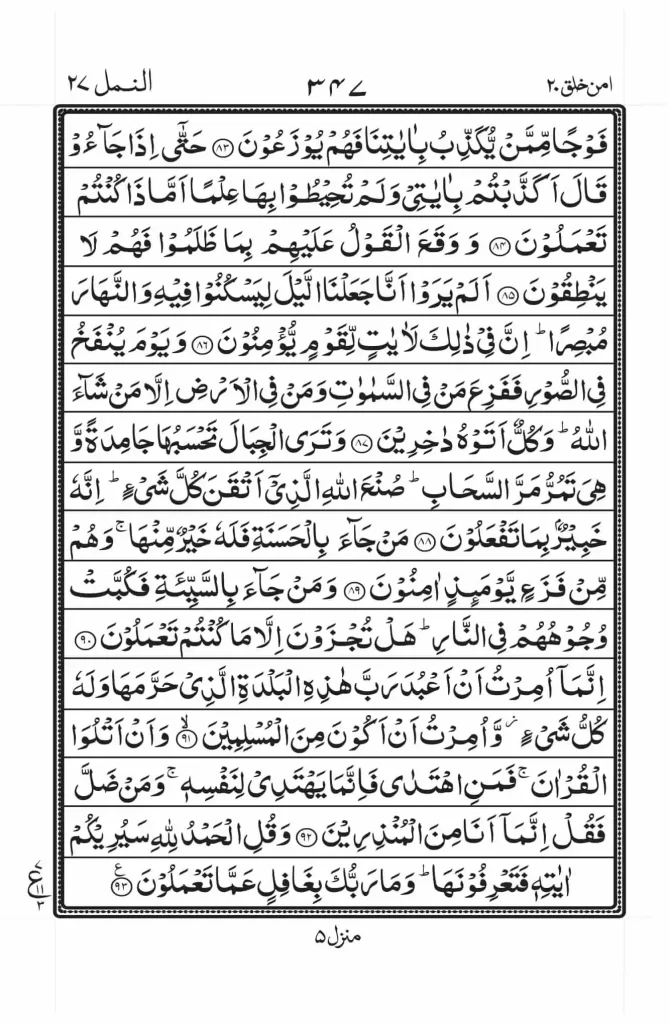 امن خلق ۲۰
۳۴۷
النمل ۲۷
فَوْجًا مِّمَّنْ يُّكَذِّبُ بِاٰيٰتِنَا فَهُمْ يُوْزَعُوْنَ ﴿۸۳﴾ حَتّٰٓى اِذَا جَآءُوْ
قَالَ اَكَذَّبْتُمْ بِاٰيٰتِيْ وَلَمْ تُحِيْطُوْا بِهَا عِلْمًا اَمَّا ذَا كُنْتُمْ
تَعْمَلُوْنَ ﴿۸۴﴾ وَ وَقَعَ الْقَوْلُ عَلَيْهِمْ بِمَا ظَلَمُوْا فَهُمْ لَا
يَنْطِقُوْنَ ﴿۸۵﴾ اَلَمْ يَرَوْا اَنَّا جَعَلْنَا الَّيْلَ لِيَسْكُنُوْا فِيْهِ وَالنَّهَارَ
مُبْصِرًا ؕ اِنَّ فِيْ ذٰلِكَ لَاٰيٰتٍ لِّقَوْمٍ يُّؤْمِنُوْنَ ﴿۸۶﴾ وَ يَوْمَ يُنْفَخُ
فِي الصُّوْرِ فَفَزِعَ مَنْ فِي السَّمٰوٰتِ وَمَنْ فِي الْاَرْضِ اِلَّا مَنْ شَآءَ
اللّٰهُ ؕ وَكُلٌّ اَتَوْهُ دٰخِرِيْنَ ﴿۸۷﴾ وَتَرَى الْجِبَالَ تَحْسَبُهَا جَامِدَةً وَّ
هِيَ تَمُرُّ مَرَّ السَّحَابِ ؕ صُنْعَ اللّٰهِ الَّذِيْٓ اَتْقَنَ كُلَّ شَيْءٍ ؕ اِنَّهٗ
خَبِيْرٌۢ بِمَا تَفْعَلُوْنَ ﴿۸۸﴾ مَنْ جَآءَ بِالْحَسَنَةِ فَلَهٗ خَيْرٌ مِّنْهَا ۚ وَهُمْ
مِّنْ فَزَعٍ يَّوْمَئِذٍ اٰمِنُوْنَ ﴿۸۹﴾ وَمَنْ جَآءَ بِالسَّيِّئَةِ فَكُبَّتْ
وُجُوْهُهُمْ فِي النَّارِ ؕ هَلْ تُجْزَوْنَ اِلَّا مَا كُنْتُمْ تَعْمَلُوْنَ ﴿۹۰﴾
اِنَّمَآ اُمِرْتُ اَنْ اَعْبُدَ رَبَّ هٰذِهِ الْبَلْدَةِ الَّذِيْ حَرَّمَهَا وَلَهٗ
كُلُّ شَيْءٍ ز وَّاُمِرْتُ اَنْ اَكُوْنَ مِنَ الْمُسْلِمِيْنَ ﴿۹۱﴾ۙ وَاَنْ اَتْلُوَا
الْقُرْاٰنَ ۚ فَمَنِ اهْتَدٰى فَاِنَّمَا يَهْتَدِيْ لِنَفْسِهٖ ۚ وَمَنْ ضَلَّ
فَقُلْ اِنَّمَآ اَنَا مِنَ الْمُنْذِرِيْنَ ﴿۹۲﴾ وَقُلِ الْحَمْدُ لِلّٰهِ سَيُرِيْكُمْ
اٰيٰتِهٖ فَتَعْرِفُوْنَهَا ؕ وَمَا رَبُّكَ بِغَافِلٍ عَمَّا تَعْمَلُوْنَ ﴿۹۳﴾ ع
۷
ع ۱۱
۳
منزل ۵